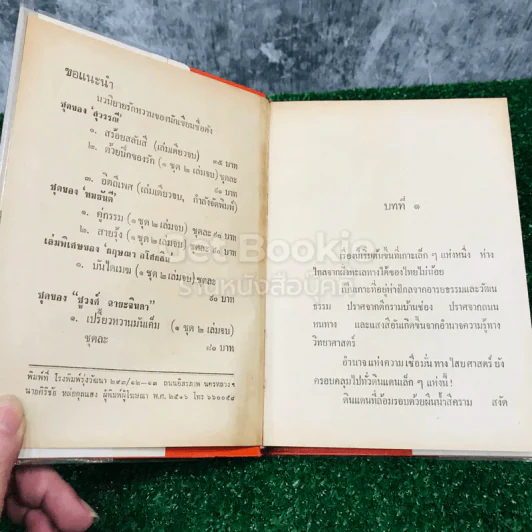 ขอแนะนำ
นวนิยายรักหวานของนักเขียนชื่อดัง
ชุดของ 'สุวรรณี'
๑. สร้อยสลับสี (เล่มเดียวจบ) ๓๕ บาท
๒. ด้วยปีกของรัก (๑ ชุด ๒ เล่มจบ) ชุดละ
๘๐ บาท
๓. อิตถีเพศ (เล่มเดียวจบ, กำลังจัดพิมพ์)
ชุดของ 'ทมยันตี'
๑. คู่กรรม (๑ ชุด ๒ เล่มจบ) ชุดละ บาท
๒. สายรุ้ง (๑ ชุด ๒ เล่มจบ) ชุดละ บาท
เล่มพิเศษของ 'กฤษณา อโศกสิน'
๑. บันไดเมฆ (๑ ชุด ๒ เล่มจบ) ชุดละ
๘๐ บาท
ชุดของ "ชูวงศ์ ฉายะจินดา"
๑. เปรี้ยวหวานมันเค็ม (๑ ชุด ๒ เล่มจบ)
ชุดละ ๘๐ บาท
พิมพ์ที่ โรงพิมพ์รุ่งวัฒนา ถนนอิสรภาพ นครหลวงฯ
นายศิริชัย หล่อตุลแสง ผู้พิมพ์ผู้โฆษณา พ.ศ. ๒๕๑๖ โทร ๖๖๐๐๕๘
บทที่ ๑
เรื่องที่เริ่มต้นขึ้นที่เกาะเล็ก ๆ แห่งหนึ่ง ห่าง
ไกลจากฝั่งทะเลทางใต้ของไทยไม่น้อย
เป็นเกาะที่อยู่ห่างไกลจากอารยธรรมและวัฒน
ธรรม ปราศจากตึกรามบ้านช่อง ปราศจากถนน
หนทาง และแสงสีอันเกิดขึ้นจากอำนาจความรู้ทาง
วิทยาศาสตร์
อำนาจแห่งความเชื่อมั่นทางไสยศาสตร์ยัง
ครอบคลุมไปทั่วดินแดนเล็ก ๆ แห่งนี้!
ดินแดนที่ล้อมรอบด้วยผืนน้ำสีคราม สงัด
Jet Bookie
ร้านหนังสือบุ๊คกี้